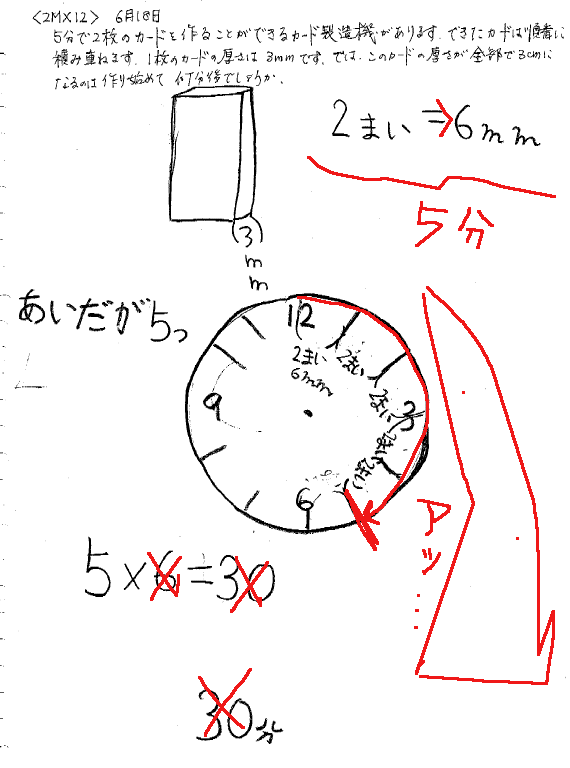 <2MX12> 6月1日
5分で2枚のカードを作ることができるカード製造機があります. できたカードは順番に
積み重ねます. 1枚のカードの厚さは 3mmです. では、このカードの厚さが全部で3cmに
なるのは作り始めて 何分後でしょうか.
2まい⇒6mm
5分
(3)
m
m
あいだが5つ
12
2まい
6mm
2まい
2まい
3
2まい
2まい
9
6
アッ……
5×6=30
30分